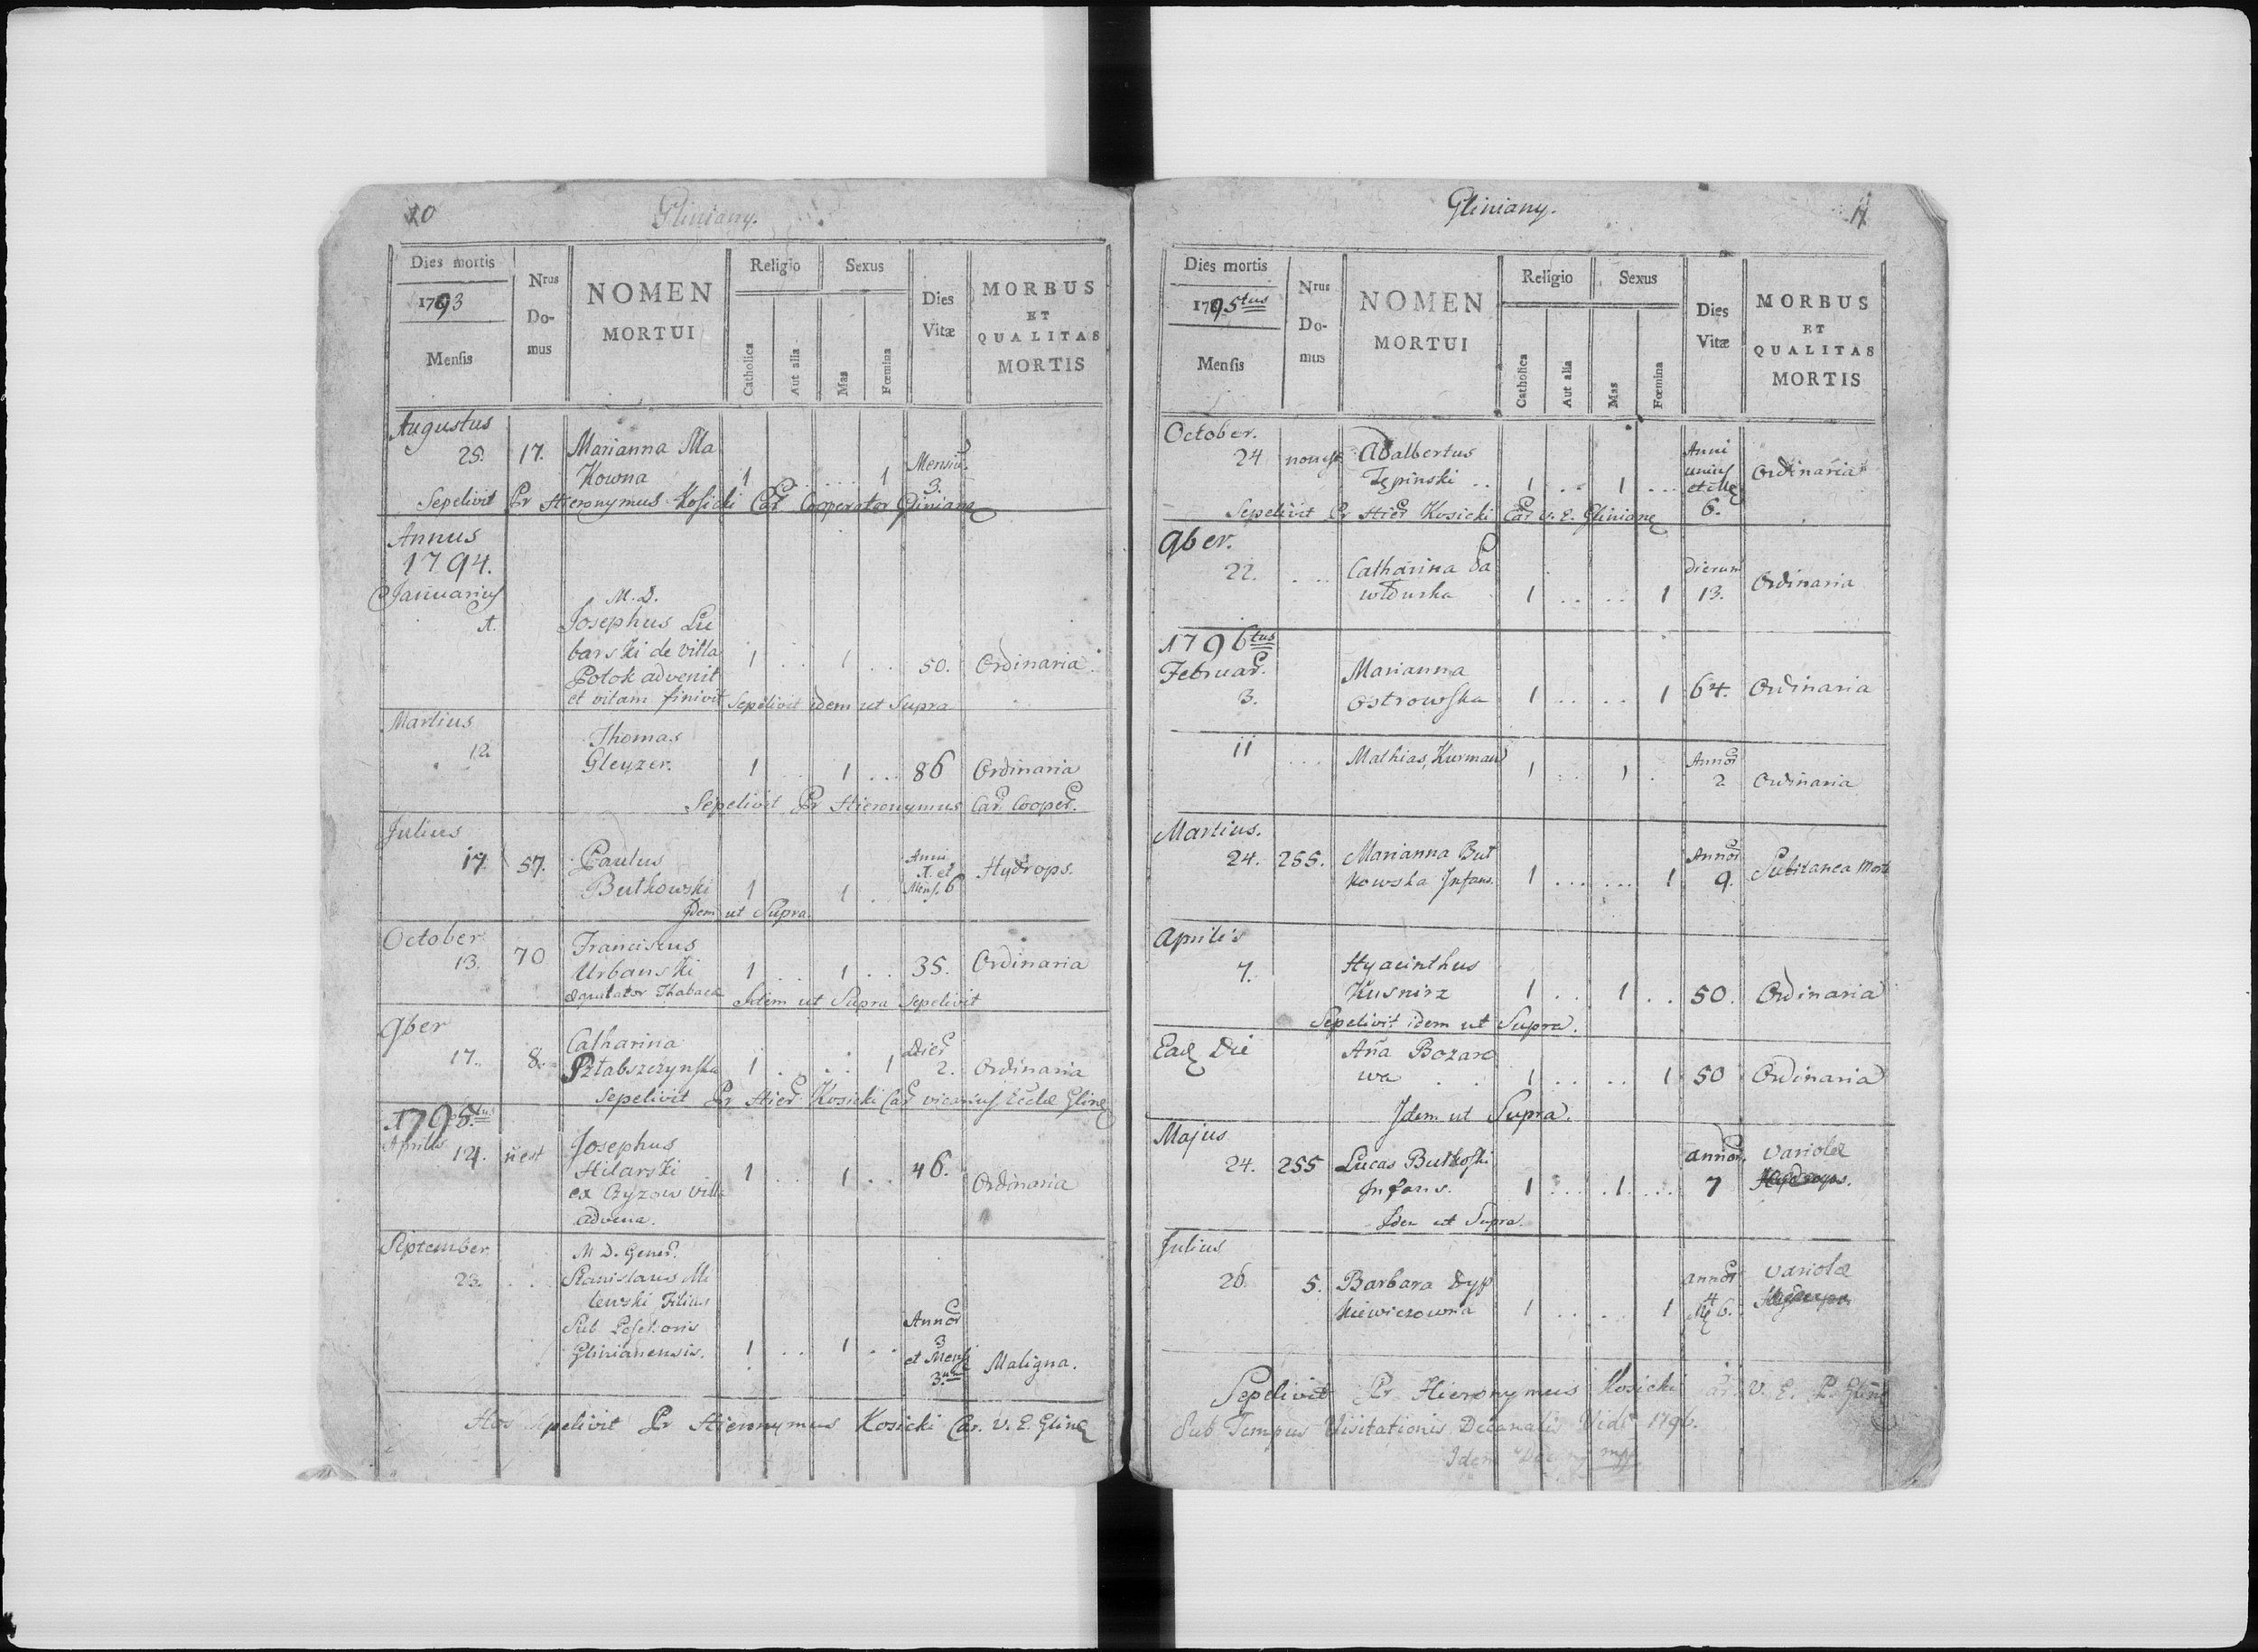 10
Gliniany.
Dies mortis
1793
Mensis
Nrus
Do-
mus
NOMEN
MORTUI
Religio
Catholica
Aut alia
Sexus
Mas
Fœmina
Dies
Vitæ
MORBUS
ET
QUALITAS
MORTIS
Augustus
25. 17. Marianna Ma
Kowna 1 . . . . . 1 Mensiu 3.
Sepelivit Pr Hieronymus Kosicki Cooperator
Annus
1794.
Januarius
M. D.
Josephus Lu
barski de villa 1 . . 1 . . 50. Ordinaria.
Potok advenit
et vitam finivit Sepelivit idem ut Supra
Martius
12 Thomas
Gleyzer. 1 . . 1 . . . 86 Ordinaria
Sepelivit Pr Hieronymus Car. Cooper.
Julius
17. 57. Paulus Anni
Butkowski 1 1 . . et Mens. 6 Hydrops.
Idem ut Supra
October
13. 70 Franciscus
Urbanski 1 . . 1 . . 35. Ordinaria
Idem ut Supra Sepelivit
9ber
17. 8. Catharina Dier
1 . . . . 1 2. Ordinaria
Sepelivit Pr Hier Kosicki Car vicarius
1795tus
Aprilis 14. Josephus
Hilarski 1 . . 1 . . 46. Ordinaria
ex villa
advena.
September.
23. M D. Gener.
Stanislaus Mi
lewski Filius
Sub
Glinianensis. 1 . . 1 . . Annor 3 et Mens 3 Maligna.
Hos Sepelivit Pr Hieronymus Kosicki Car. V. E. Glin
Gliniany.
11
Dies mortis
1795tus
Mensis
Nrus
Do-
mus
NOMEN
MORTUI
Religio
Catholica
Aut alia
Sexus
Mas
Fœmina
Dies
Vitæ
MORBUS
ET
QUALITAS
MORTIS
October.
24 non est Adalbertus Anni
Tępinski . . 1 . . 1 . . . unius et 6. Ordinaria
Sepelivit Pr Hier Kosicki Car V. E.
9ber.
22. . . . Catharina Pa dierum
wlowska 1 . . . . 1 13. Ordinaria
1796tus
Februar.
3. Marianna
Ostrowska 1 . . . . 1 64. Ordinaria
11 . . . Mathias 1 . . 1 . Annor 2 Ordinaria
Martius.
24. 255. Marianna But Annor
kowska Infans. 1 . . . . . . 1 9. Subitanea
Aprilis
7. Hyacinthus
Kusnirz 1 . . 1 . . 50. Ordinaria
Sepelivit idem ut Supra.
Ead Die Ana Bozaro
wa . . 1 . . . . 1 50 Ordinaria
Idem ut Supra.
Majus
24. 255 Lucas annor. Variolæ
Infans. 1 . . . 1 . . . 7
Idem ut Supra.
Julius
26. 5. Barbara annor Variolæ
1 . . . . 1 4 6.
Sepelivit Pr Hieronymus Kosicki V. E.
Sub Tempus Visitationis Decanalis Vidi 1796.
Idem